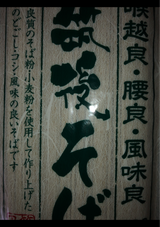 喉越良・腰良・風味良
筑後そば
良質のそば粉・小麦粉を使用して作り上げた
のどごし・コシ・風味の良いそばです